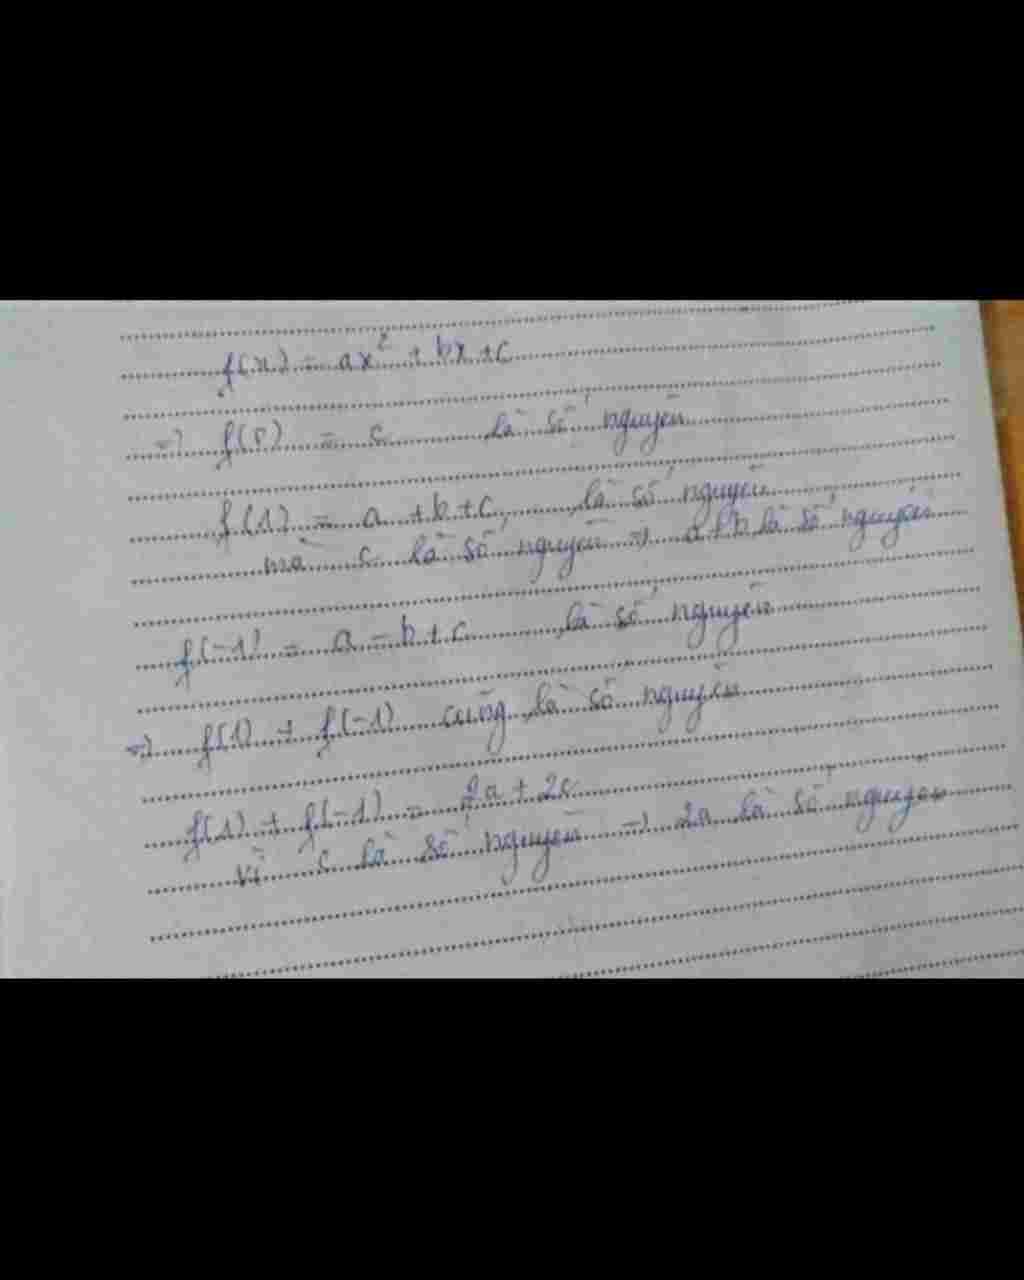 f(x) = ax² + bx + c
=> f(0) = c là số nguyên
f(1) = a + b + c, là số nguyên
mà c là số nguyên => a + b là số nguyên
f(-1) = a - b + c là số nguyên
=> f(1) + f(-1) cũng là số nguyên
f(1) + f(-1) = 2a + 2c
vì c là số nguyên => 2a là số nguyên